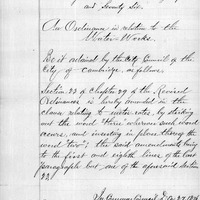 and Seventy Six.
An Ordinance in relation to the
Water Works.
Be it ordained by the City Council of the
City of Cambridge, as follows.
Section 23 of Chapter 29 of the Revised
Ordinances is hereby amended in the
clause relating to water rates, by striking
out the word "three" wherever such word
occurs, and inserting in place thereof the
word "two"; the said amendments being
to the first and eighth lines of the last
paragraph but one of the aforesaid Section
23.
In Common Council Dec 27. 1876